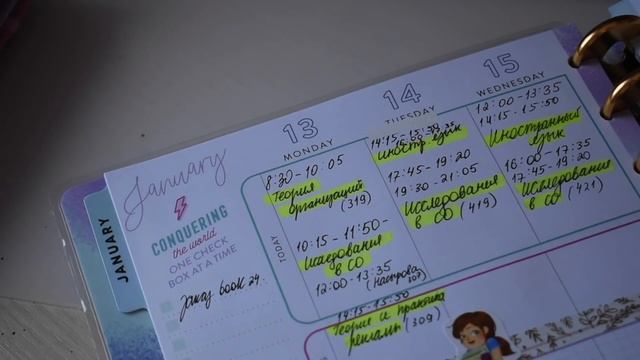 January
CONQUERING
the world
ONE CHECK
BOX AT A TIME
JANUARY
TODAY
заказ book 24
13
MONDAY
8:30-10:05
Теория
организаций
(319)
10:15-11:50-
Исследования
в СО
12:00-13:35
14:15-15:50
Теория и практика
рекламы (309)
14
TUESDAY
иностр. язык
17:45-19:20
19:30-21:05
Исследования
в СО (419)
15
WEDNESDAY
12:00-13:35
14:15-15:50
Иностранный
язык
16:00-17:35
17:45-19:20
Исследования
в СО (421)